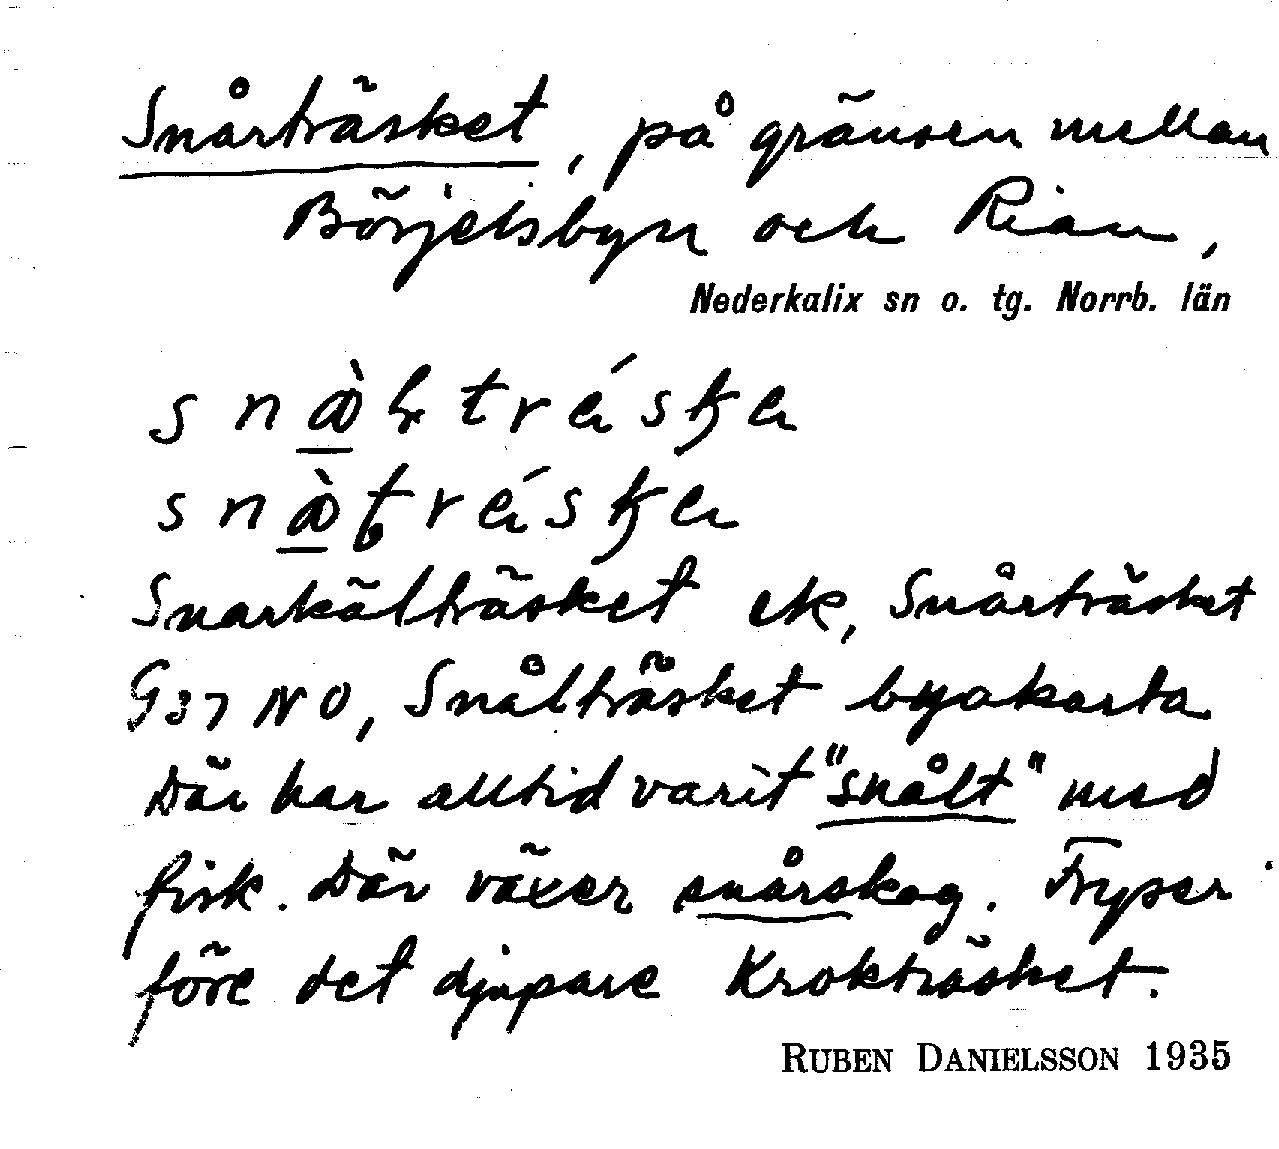 Snårträsket, på gränsen mellan
Börjelsbyn och Rian,
Nederkalix sn o. tg. Norrb. län
Snarkälträsket ek, Snårträsket
G37 NO, Snålträsket byakarta
Där har alltid varit "snålt" med
fisk. Där växer snårskog. Fryser
före det djupare Krokträsket.
RUBEN DANIELSSON 1935